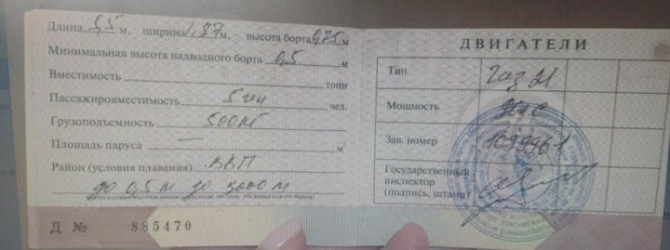 Длина 5,5 м, ширина 1,87 м, высота борта 0,75 м
Минимальная высота надводного борта 0,5 м
Вместимость тонн
Пассажировместимость 5 чел чел.
Грузоподъемность 500 кг
Площадь паруса — м²
Район (условия плавания) ВВП
до 0,5 м до 3000 м
Д № 885470
ДВИГАТЕЛИ
Тип Газ 21
Мощность
Зав. номер
Государственный
инспектор
(подпись, штамп)